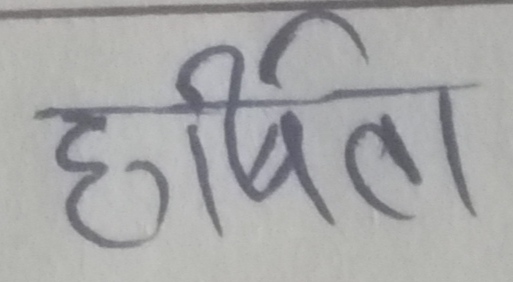 हर्षिता